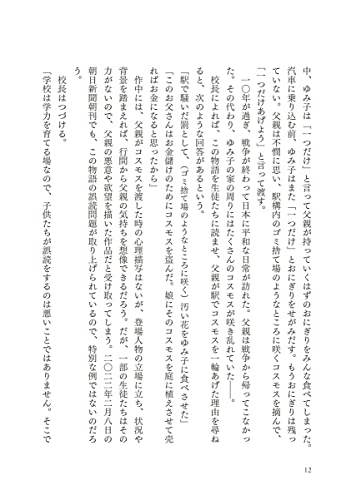 中、ゆみ子は「一つだけ」と言って父親が持っていくはずのおにぎりをみんな食べてしまった。
汽車に乗り込む前、ゆみ子はまた「一つだけ」とおにぎりをせがみだす。もうおにぎりは残っ
ていない。父親は不憫に思い、駅構内のゴミ捨て場のようなところに咲くコスモスを摘んで、
「一つだけあげよう」と言って渡す。
一〇年が過ぎ、戦争が終わって日本に平和な日常が訪れた。父親は戦争から帰ってこなかっ
た。その代わり、ゆみ子の家の周りにはたくさんのコスモスが咲き乱れていた――。
校長によれば、この物語を生徒たちに読ませ、父親が駅でコスモスを一輪あげた理由を尋ね
ると、次のような回答があるという。
「駅で騒いだ罰として、（ゴミ捨て場のようなところに咲く）汚い花をゆみ子に食べさせた」
「このお父さんはお金儲けのためにコスモスを盗んだ。娘にそのコスモスを庭に植えさせて売
ればお金になると思ったから」
作中には、父親がコスモスを渡した時の心理描写はないが、登場人物の立場に立ち、状況や
背景を踏まえれば、行間から父親の気持ちを想像できるだろう。だが、一部の生徒たちはその
力がないので、父親の悪意や欲望を描いた作品だと受け取ってしまう。二〇二二年二月八日の
朝日新聞朝刊でも、この物語の誤読問題が取り上げられているので、特別な例ではないのだろ
う。
校長はつづける。
「学校は学力を育てる場なので、子供たちが誤読をするのは悪いことではありません。そこで
12